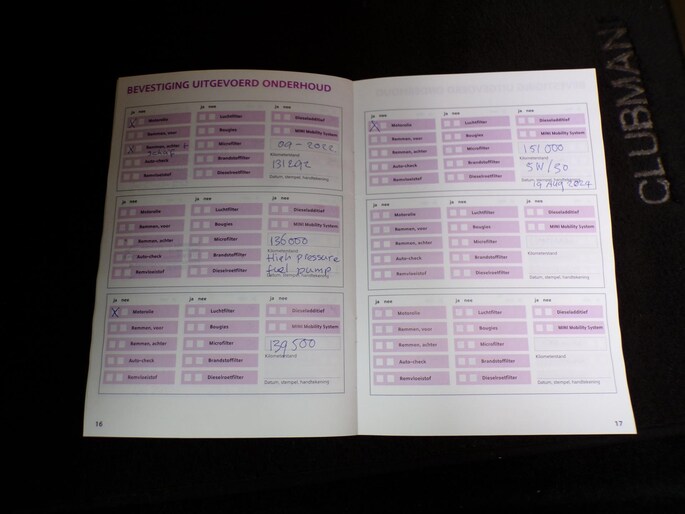 BEVESTIGING UITGEVOERD ONDERHOUD
ja nee ja nee ja nee
Motorolie Luchtfilter Dieseladditief
Remmen, voor Bougies MINI Mobility System
Remmen, achter Microfilter 09-2022
Auto-check Brandstoffilter Kilometerstand
Remvloeistof Dieselroetfilter Datum, stempel, handtekening
ja nee ja nee ja nee
Motorolie Luchtfilter Dieseladditief
Remmen, voor Bougies MINI Mobility System
Remmen, achter Microfilter 136000
Auto-check Brandstoffilter High pressure
Remvloeistof Dieselroetfilter fuel pump
Datum, stempel, handtekening
ja nee ja nee ja nee
X Motorolie Luchtfilter Dieseladditief
Remmen, voor Bougies MINI Mobility System
Remmen, achter Microfilter 139500
Auto-check Brandstoffilter Kilometerstand
Remvloeistof Dieselroetfilter Datum, stempel, handtekening
16
ja nee ja nee ja nee
X Motorolie Luchtfilter Dieseladditief
Remmen, voor Bougies MINI Mobility System
Remmen, achter Microfilter 151000
Auto-check Brandstoffilter Kilometerstand
5W/30
Remvloeistof Dieselroetfilter Datum, stempel, handtekening
19 Aug 2024
ja nee ja nee ja nee
Motorolie Luchtfilter Dieseladditief
Remmen, voor Bougies MINI Mobility System
Remmen, achter Microfilter
Auto-check Brandstoffilter Kilometerstand
Remvloeistof Dieselroetfilter Datum, stempel, handtekening
ja nee ja nee ja nee
Motorolie Luchtfilter Dieseladditief
Remmen, voor Bougies MINI Mobility System
Remmen, achter Microfilter
Auto-check Brandstoffilter Kilometerstand
Remvloeistof Dieselroetfilter Datum, stempel, handtekening
17
CLUBMAN